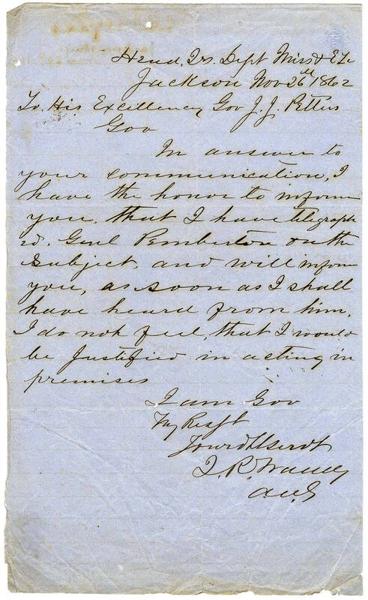 Head, Qrs Dept Miss & E La
Jackson Nov 26th 1862
To His Excellency Gov J. J. Pettus
Gov
In answer to
your communication, I
have the honor to inform
you, that I have telegraph
ed. Genl Pemberton on the
Subject, and will inform
you, as soon as I shall
have heard from him.
I do not feel, that I would
be Justified in acting in
premises
I am Gov
Vy Respt
Your obt Servt
R.